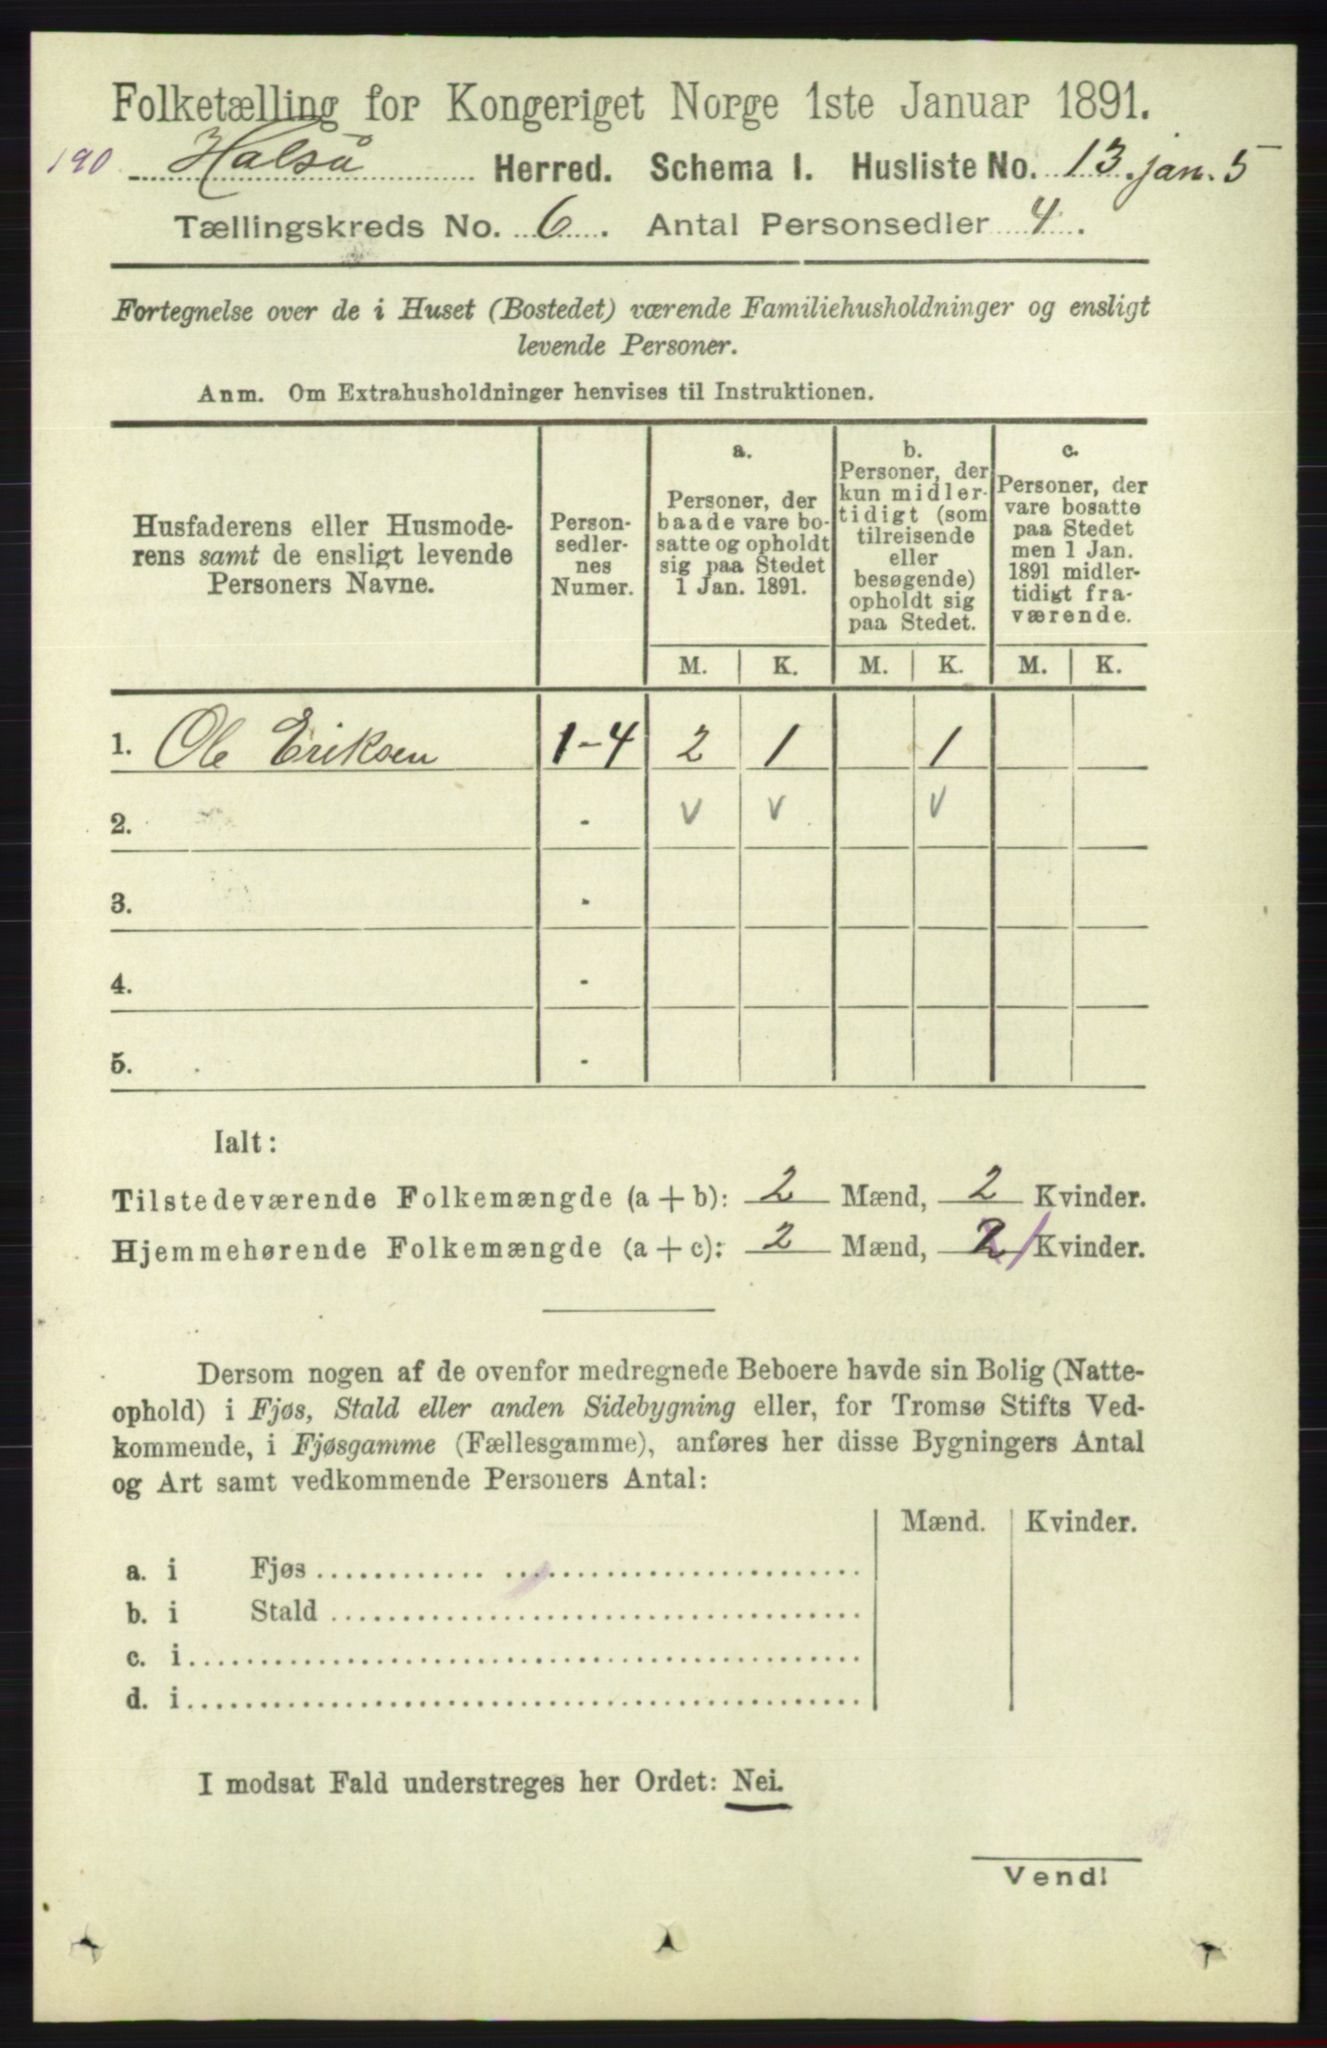 Folketælling for Kongeriget Norge 1ste Januar 1891.
190 Halså Herred. Schema I. Husliste No. 13. jan. 5
Tællingskreds No. 6. Antal Personsedler 4.
Fortegnelse over de i Huset (Bostedet) værende Familiehusholdninger og ensligt
levende Personer.
Anm. Om Extrahusholdninger henvises til Instruktionen.
Husfaderens eller Husmode-
rens samt de ensligt levende
Personers Navne.
Person-
sedler-
nes
Numer.
a.
Personer, der
baade vare bo-
satte og opholdt
sig paa Stedet
1 Jan. 1891.
b.
Personer, der
kun midler-
tidigt (som
tilreisende
eller
besøgende)
opholdt sig
paa Stedet.
c.
Personer, der
vare bosatte
paa Stedet
men 1 Jan.
1891 midler-
tidigt fra-
værende.
M. K. M. K. M. K.
1. Ole Eriksen 1-4 2 1 1
2. - v v v
3. -
4. -
5. -
Ialt:
Tilstedeværende Folkemængde (a + b): 2 Mænd, 2 Kvinder.
Hjemmehørende Folkemængde (a + c): 2 Mænd, 2 / Kvinder.
Dersom nogen af de ovenfor medregnede Beboere havde sin Bolig (Natte-
ophold) i Fjøs, Stald eller anden Sidebygning eller, for Tromsø Stifts Ved-
kommende, i Fjøsgamme (Fællesgamme), anføres her disse Bygningers Antal
og Art samt vedkommende Personers Antal:
Mænd. Kvinder.
a. i Fjøs
b. i Stald
c. i
d. i
I modsat Fald understreges her Ordet: Nei.
Vend!